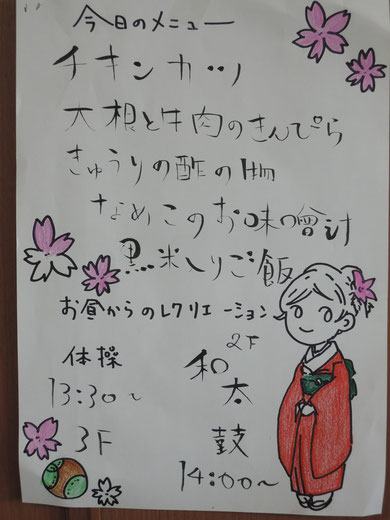 今日のメニュー
チキンカツ
大根と牛肉のきんぴら
きゅうりの酢の物
なめこのお味噌汁
黒米入りご飯
お昼からのレクリエーション
体操
13:30〜
3F
2F
和太鼓
14:00〜